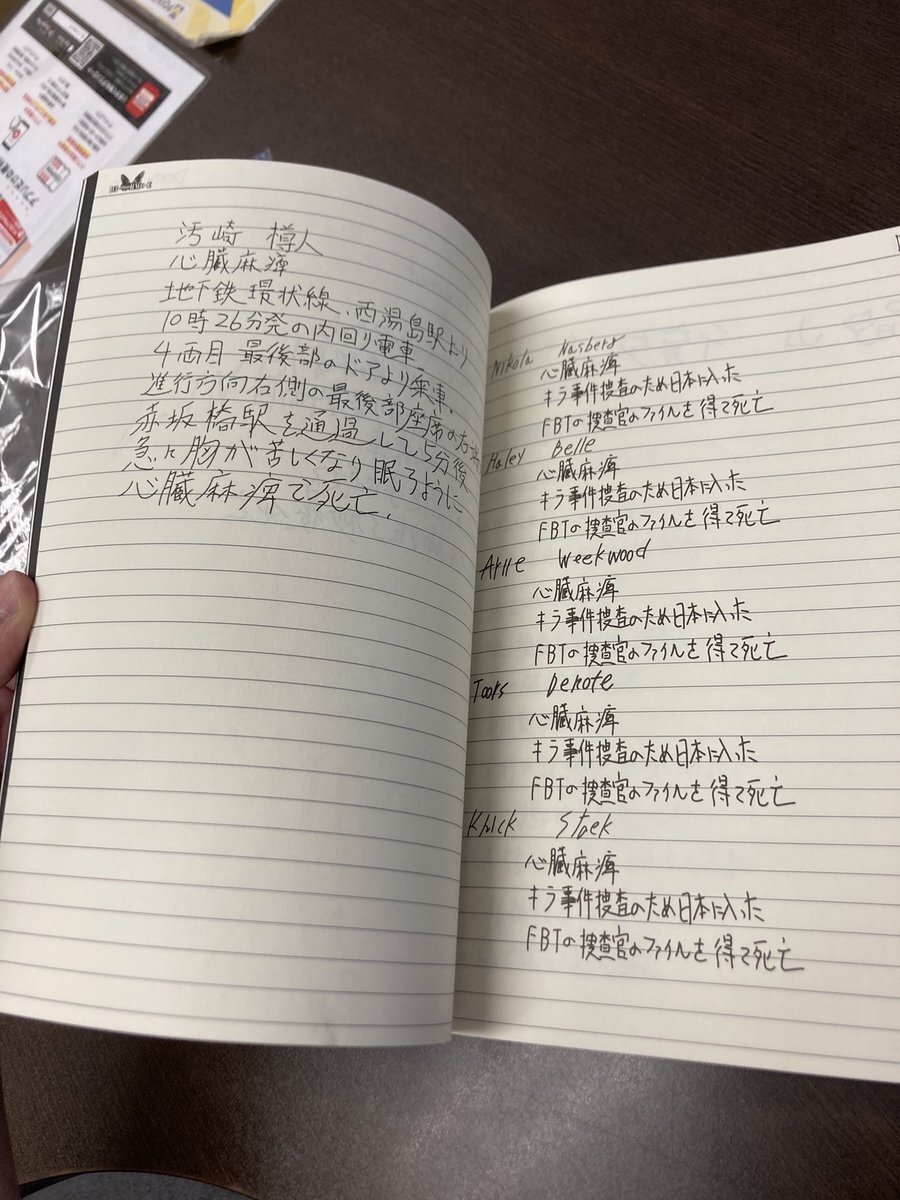 汚崎 樽人
心臓麻痺
地下鉄環状線、西湯島駅より
10時26分発の内回り電車
4両目 最後部のドアより乗車、
進行方向右側の最後部座席の右
赤坂橋駅を通過して5分後
急に胸が苦しくなり眠るように
心臓麻痺で死亡.
Nikola Nasberg
心臓麻痺
キラ事件捜査のため日本に入った
FBIの捜査官のファイルを得て死亡
Haley Belle
心臓麻痺
キラ事件捜査のため日本に入った
FBIの捜査官のファイルを得て死亡
Arire Weekwood
心臓麻痺
キラ事件捜査のため日本に入った
FBIの捜査官のファイルを得て死亡
Toors Denote
心臓麻痺
キラ事件捜査のため日本に入った
FBIの捜査官のファイルを得て死亡
Knick Staek
心臓麻痺
キラ事件捜査のため日本に入った
FBIの捜査官のファイルを得て死亡